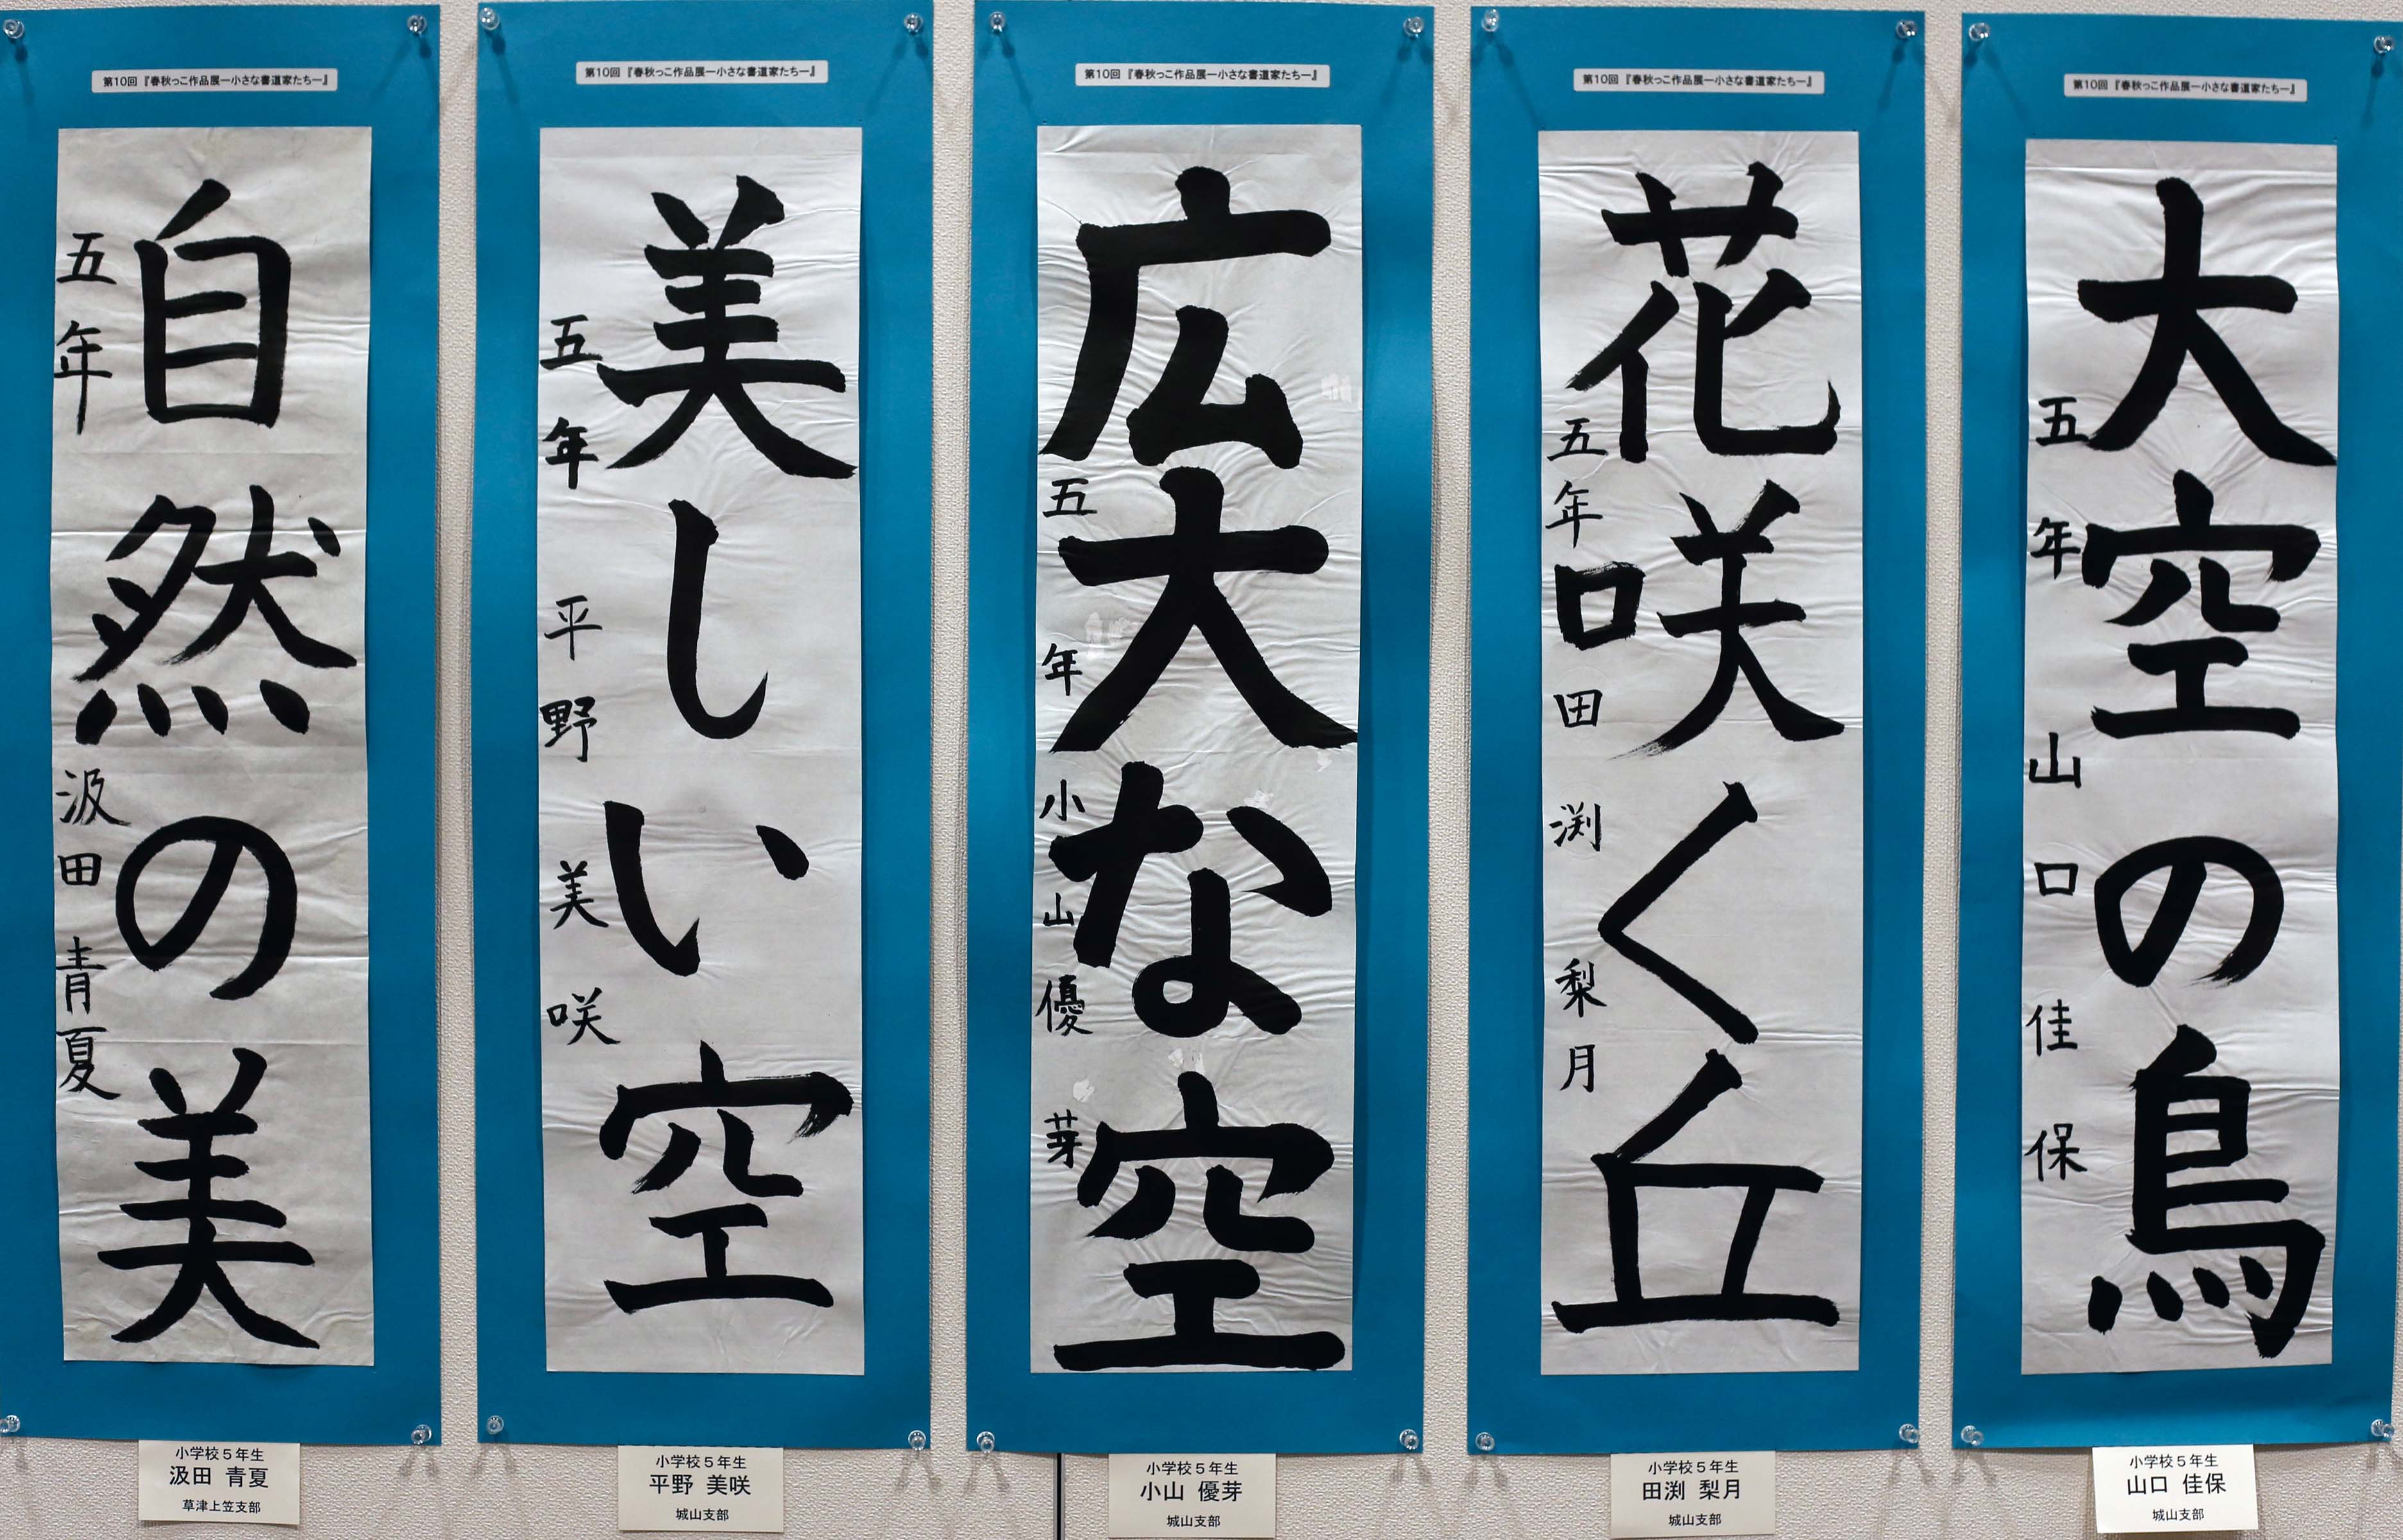 第10回『春秋っこ作品展ー小さな書道家たちー』
自然の美
五年 汲田 青夏
小学校5年生
汲田 青夏
草津上笠支部
第10回『春秋っこ作品展ー小さな書道家たちー』
美しい空
五年 平野 美咲
小学校5年生
平野 美咲
城山支部
第10回『春秋っこ作品展ー小さな書道家たちー』
広大な空
五年 小山 優芽
小学校5年生
小山 優芽
城山支部
第10回『春秋っこ作品展ー小さな書道家たちー』
花咲く丘
五年 田渕 梨月
小学校5年生
田渕 梨月
城山支部
第10回『春秋っこ作品展ー小さな書道家たちー』
大空の鳥
五年 山口 佳保
小学校5年生
山口 佳保
城山支部